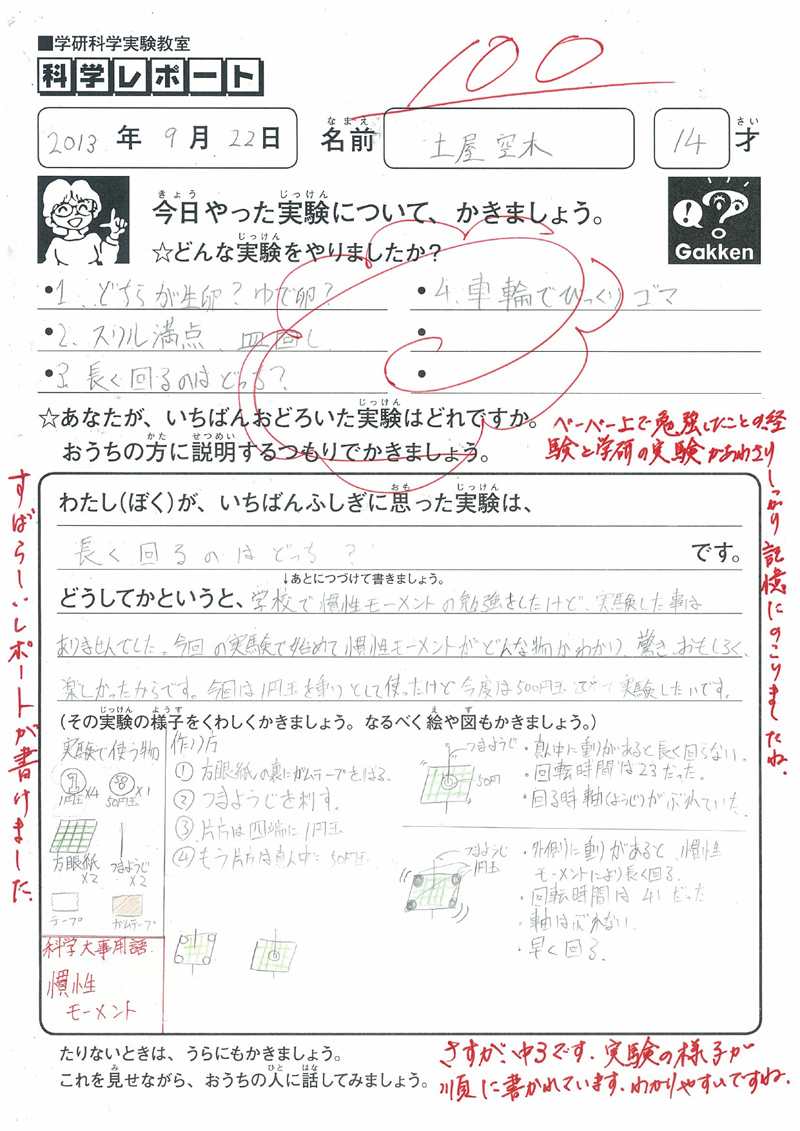 ■学研科学実験教室
科学レポート
100
2013 年 9 月 22 日 名前 土屋 空木 14 才
なまえ さい
今日やった実験について、かきましょう。
きょう じっけん
☆どんな実験をやりましたか?
じっけん
Gakken
•1. どちらが生卵?ゆで卵?
•2. スリル満点 皿回し
•3. 長く回るのはどっち?
•4. 車輪でびっくりゴマ
•
•
☆あなたが、いちばんおどろいた実験はどれですか。
じっけん
おうちの方に説明するつもりでかきましょう。
かた せつめい
ペーパー上で勉強したことの経
験と学研の実験があわさり
しっかり記憶にのこりましたね。
すばらしいレポートが書けました。
わたし(ぼく)が、いちばんふしぎに思った実験は、
おも じっけん
長く回るのはどっち? です。
↓あとにつづけて書きましょう。
どうしてかというと、学校で慣性モーメントの勉強をしたけど、実験した事は
ありませんでした。今回の実験で始めて慣性モーメントがどんな物かわかり、驚き、おもしろく、
楽しかったからです。今回は1円玉を重りとして使ったけど今度は500円玉 実験したいです。
(その実験の様子をくわしくかきましょう。なるべく絵や図もかきましょう。)
じっけん ようす え ず
実験で使う物
1円玉×4
50円玉×1
方眼紙×2
つまようじ×2
テープ
ガムテープ
科学大事用語
慣性
モーメント
作り方
① 方眼紙の裏にガムテープをはる.
② つまようじを刺す.
③ 片方は四端に1円玉
④ もう片方は真中に50円玉
つまようじ
50円
・真中に重りがあると長く回らない.
・回転時間は23だった.
・回る時軸(ようじ)がぶれていた.
つまようじ
1円玉
・外側に重りがあると慣性
モーメントにより長く回る.
・回転時間は41だった
・軸はぶれない.
・早く回る.
たりないときは、うらにもかきましょう。
これを見せながら、おうちの人に話してみましょう。
み ひと はな
さすが、中3です.実験の様子が
順に書かれています.わかりやすいですね.